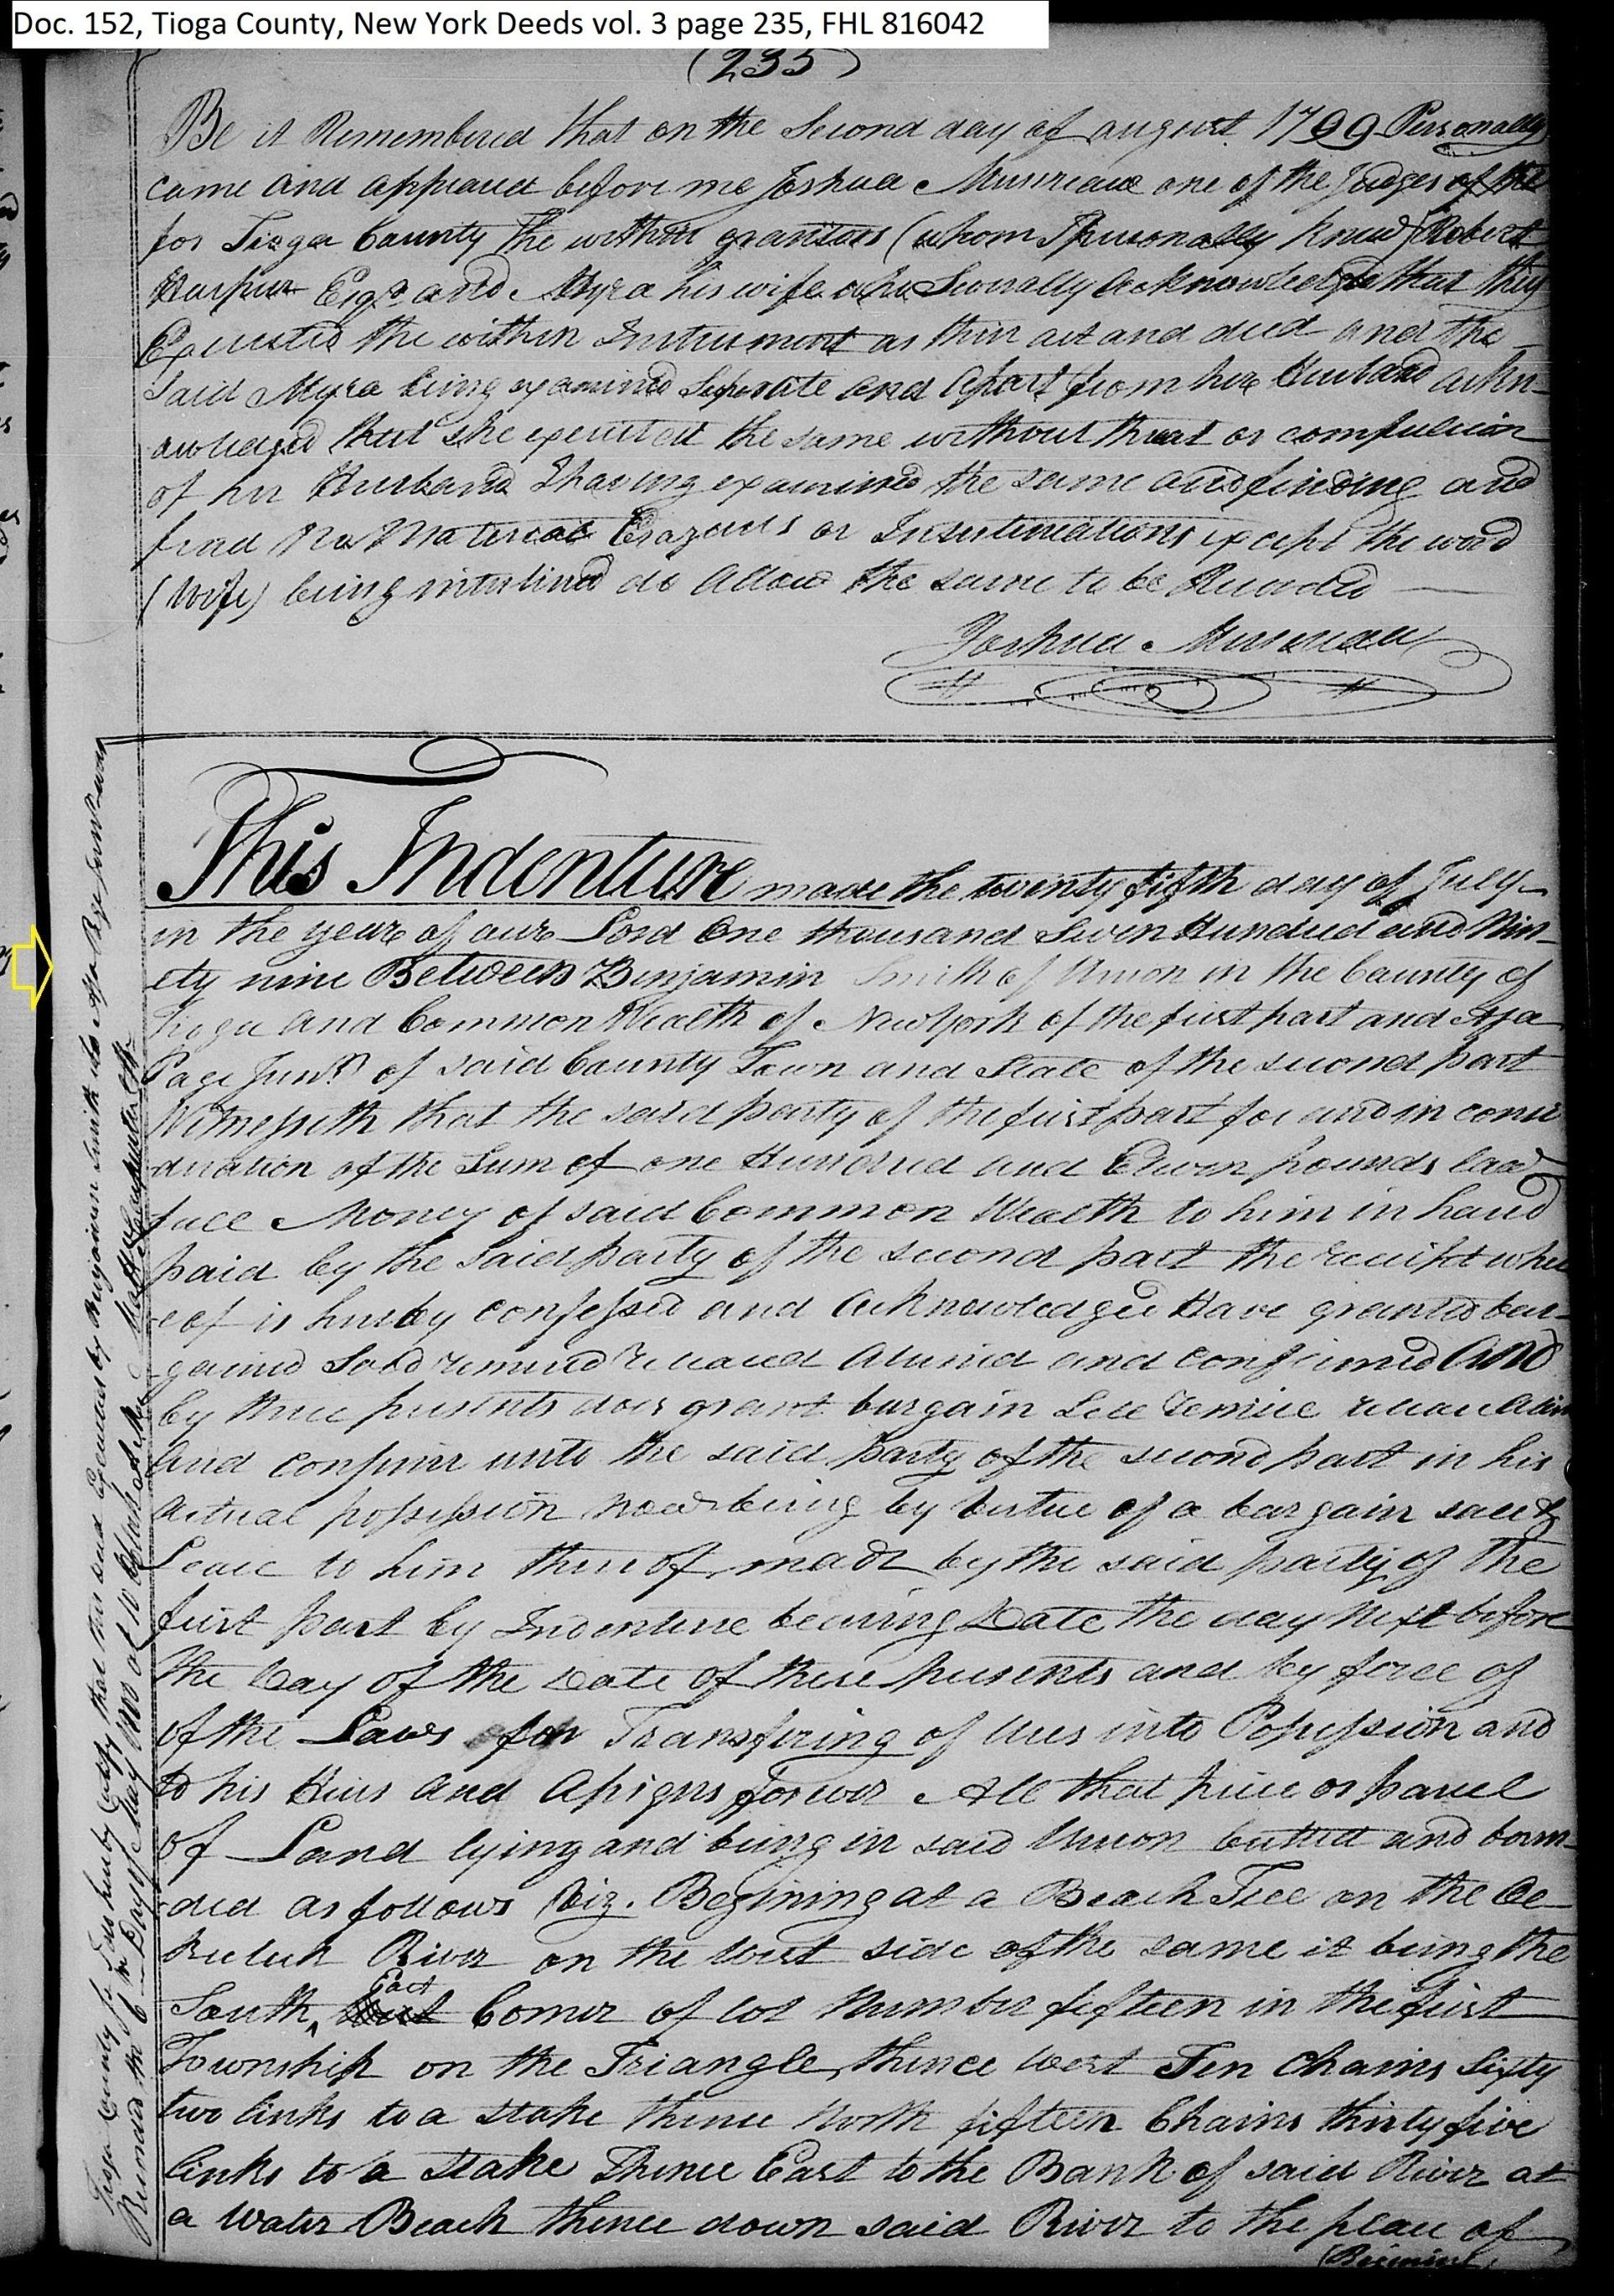 Doc. 152, Tioga County, New York Deeds vol. 3 page 235, FHL 816042
(235)
Be it Remembered that on the Second day of august 1799 Personally
came and appeared before me Joshua Mersereau one of the Judges of the
for Tioga County the within grantors (whom I personally know) Robert
Harpur Esqr. and Myra his wife who Severally Acknowledged that they
Executed the within Instrument as their act and deed and the
Said Myra being examined Seperate and Apart from her Husband ackn-
owledged that she executed the same without threat or compulsion
of her Husband I having examined the same and finding and
find No Material Erazures or Interlineations except the word
(Wife) being interlined do Allow the same to be Recorded
Joshua Mersereau
This Indenture made the twenty fifth day of July
in the year of our Lord One thousand Seven Hundred and Nin-
ety nine Between Benjamin Smith of Union in the County of
Tioga and Common Wealth of New York of the first part and Asa
Page Junr. of said County Town and State of the second part
Witnesseth that the said party of the first part for and in consi
deration of the Sum of one Hundred and Eleven pounds law
full Money of said Common Wealth to him in hand
paid by the Said party of the second part the receipt whe
eof is hereby confessed and Acknowledged Have granted bar-
gained Sold remised released Aliened and confirmed And
by these presents does grant bargain Sell remise release Alien
And confirm unto the said party of the second part in his
actual possession now being by virtue of a bargain sale &
Lease to him thereof made by the said party of the
first part by Indenture bearing Date the day next before
the Day of the Date of these presents and by force of
of the Laws for Transfering of uses into Possession and
to his Heirs and Assigns forever All that piece or parcel
of Land lying and being in said Union butted and boun-
ded as follows Viz. Begining at a Beach Tree on the Oc-
keluk River on the West side of the same it being the
South East Corner of lot Number fifteen in the first
Township on the Triangle, thence West Ten Chains Sixty
two links to a stake thence North fifteen Chains thirty five
links to a stake Thence East to the Bank of said River at
a Water Beach thence down said River to the place of
(Begining
Tioga County Ss I do hereby Certify that this deed Executed by Benjamin Smith to Asa Page Junr was
Recorded the 6th Day of May 1800 at 10 OClock